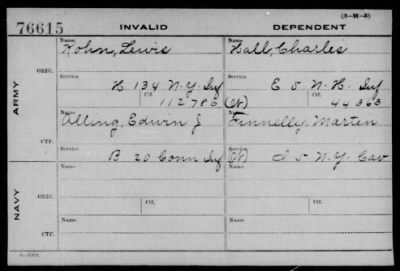 (3-M-3)
76615 INVALID DEPENDENT
ARMY
ORIG.
Name Kohn, Lewis
Name Hall, Charles
Service H 134 N.Y. Inf
Service E 5 N.H. Inf
Ctf. 112786
(W) Ctf. 44363
CTF.
Name Alling, Edwin J
Name Finnelly, Marten
Service B 20 Conn Inf
(W) Service I 5 N.Y. Cav
NAVY
ORIG.
Name
Ctf.
Name
Ctf.
Service
Service
CTF.
Name
Name